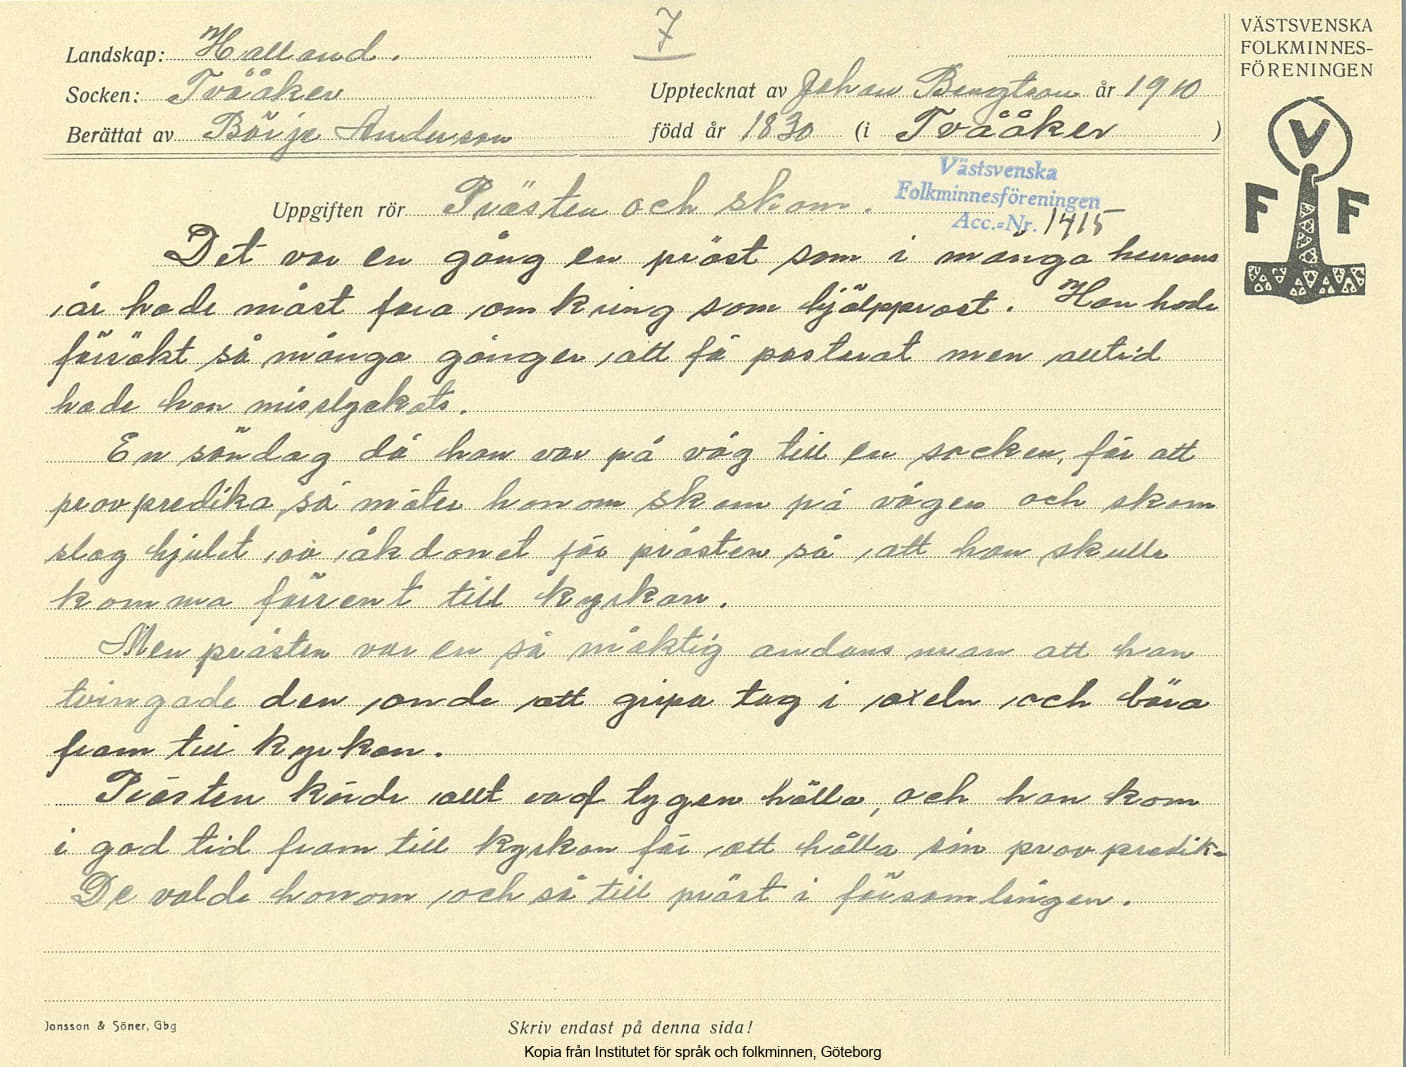 7
Landskap: Halland.
Socken: Tvååker
Upptecknat av Johan Bengtson år 1910
Berättat av Börje Anderson
född år 1830 (i Tvååker)
VÄSTSVENSKA
FOLKMINNES-
FÖRENINGEN
V
F F
Västsvenska
Folkminnesföreningen
Acc.-Nr. 1415
Uppgiften rör Prästen och skam.
Det var en gång en präst som i många herrans
år hade måst fara omkring som hjälpprast. Han hade
försökt så många gånger att få pastorat men alltid
hade han misslyckats.
En söndag då han var på väg till en socken, för att
provpredika, så möter honom skam på vägen och skam
slog hjulet av åkdonet för prästen så att han skulle
komma försent till kyrkan.
Men prästen var en så mäktig andans man att han
tvingade den onde att gripa tag i axeln och bära
fram till kyrkan.
Prästen körde allt vad tygen hålla, och han kom
i god tid fram till kyrkan för att hålla sin provpredik-
De valde honom och så till präst i församlingen.
Jonsson & Söner, Gbg
Skriv endast på denna sida!
Kopia från Institutet för språk och folkminnen, Göteborg